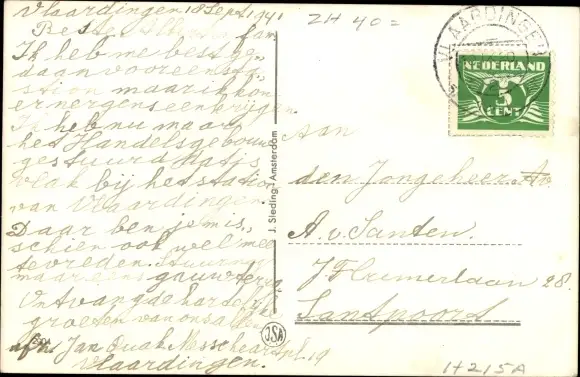 Vlaardingen 18 Sept. 1941
Beste Albert en fam.
Ik heb me best ge„
daan voor een sta„
tion maar ik kon
er nergens een krijgen.
Ik heb nu maar
het Handelsgebouw
gestuurd
vlak bij het station
van Vlaardingen.
Daar ben je mis„
schien ook wel mee
tevreden. Stuur nu
maar eens gauw terug
Ontvang de hartelijke
groeten van ons allen
afz. Jan Quak
Vlaardingen.
ZH 40=
VLAARDINGEN
NEDERLAND
5
CENT
J. Sleding - Amsterdam
JSA
Aan
den Jongeheer
A. v. Santen.
J T Cremerlaan 28.
Santpoort
1H215A